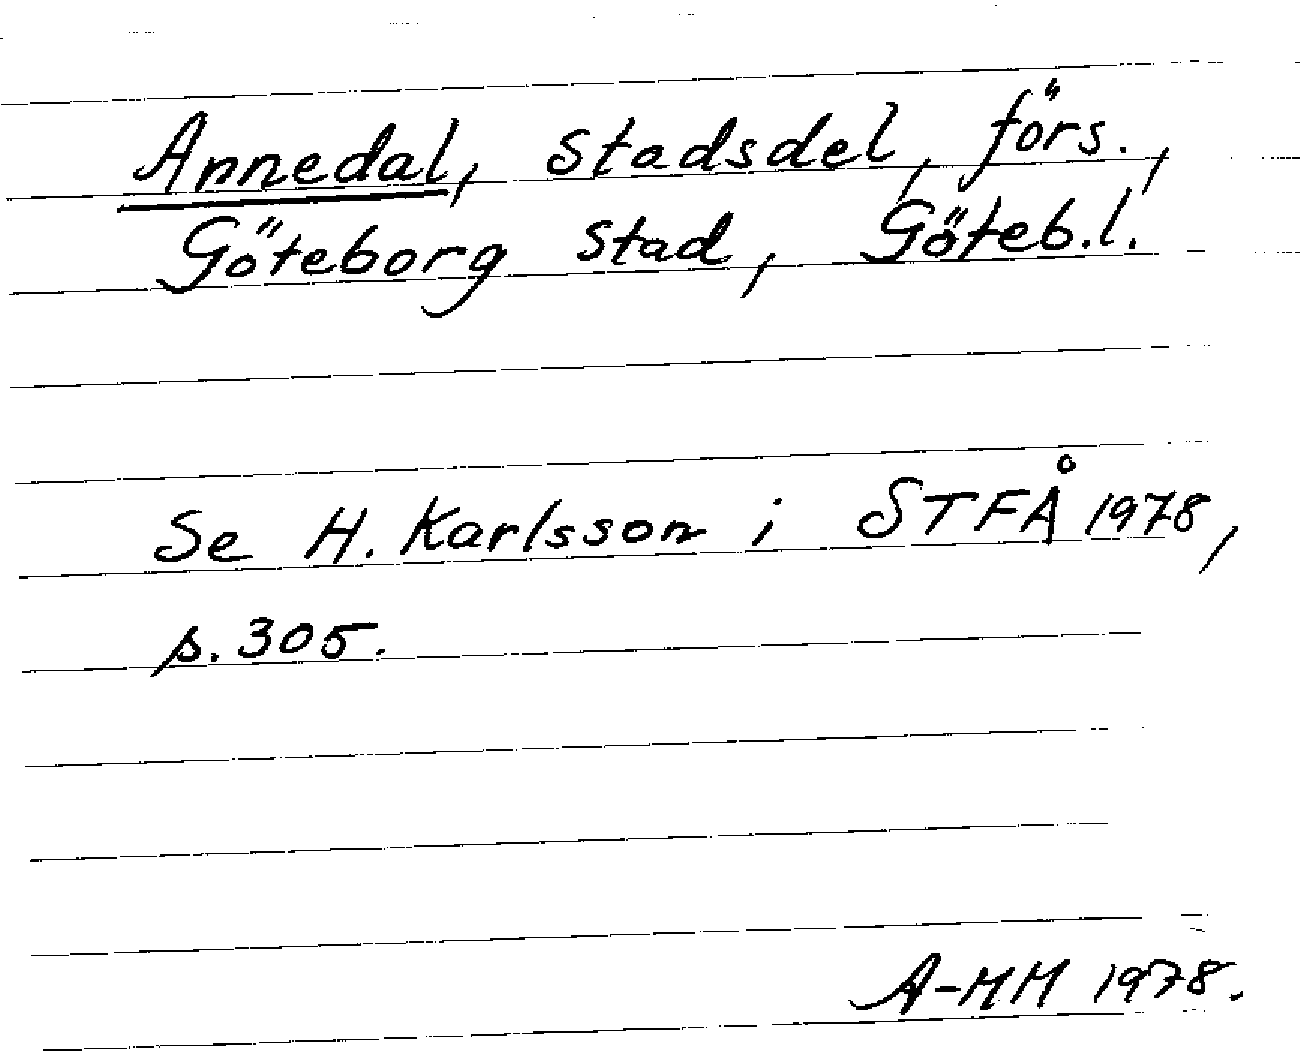 Annedal, stadsdel, förs.,
Göteborg stad, Göteb.l.
Se H. Karlsson i STFÅ 1978,
s. 305.
A-MM 1978.